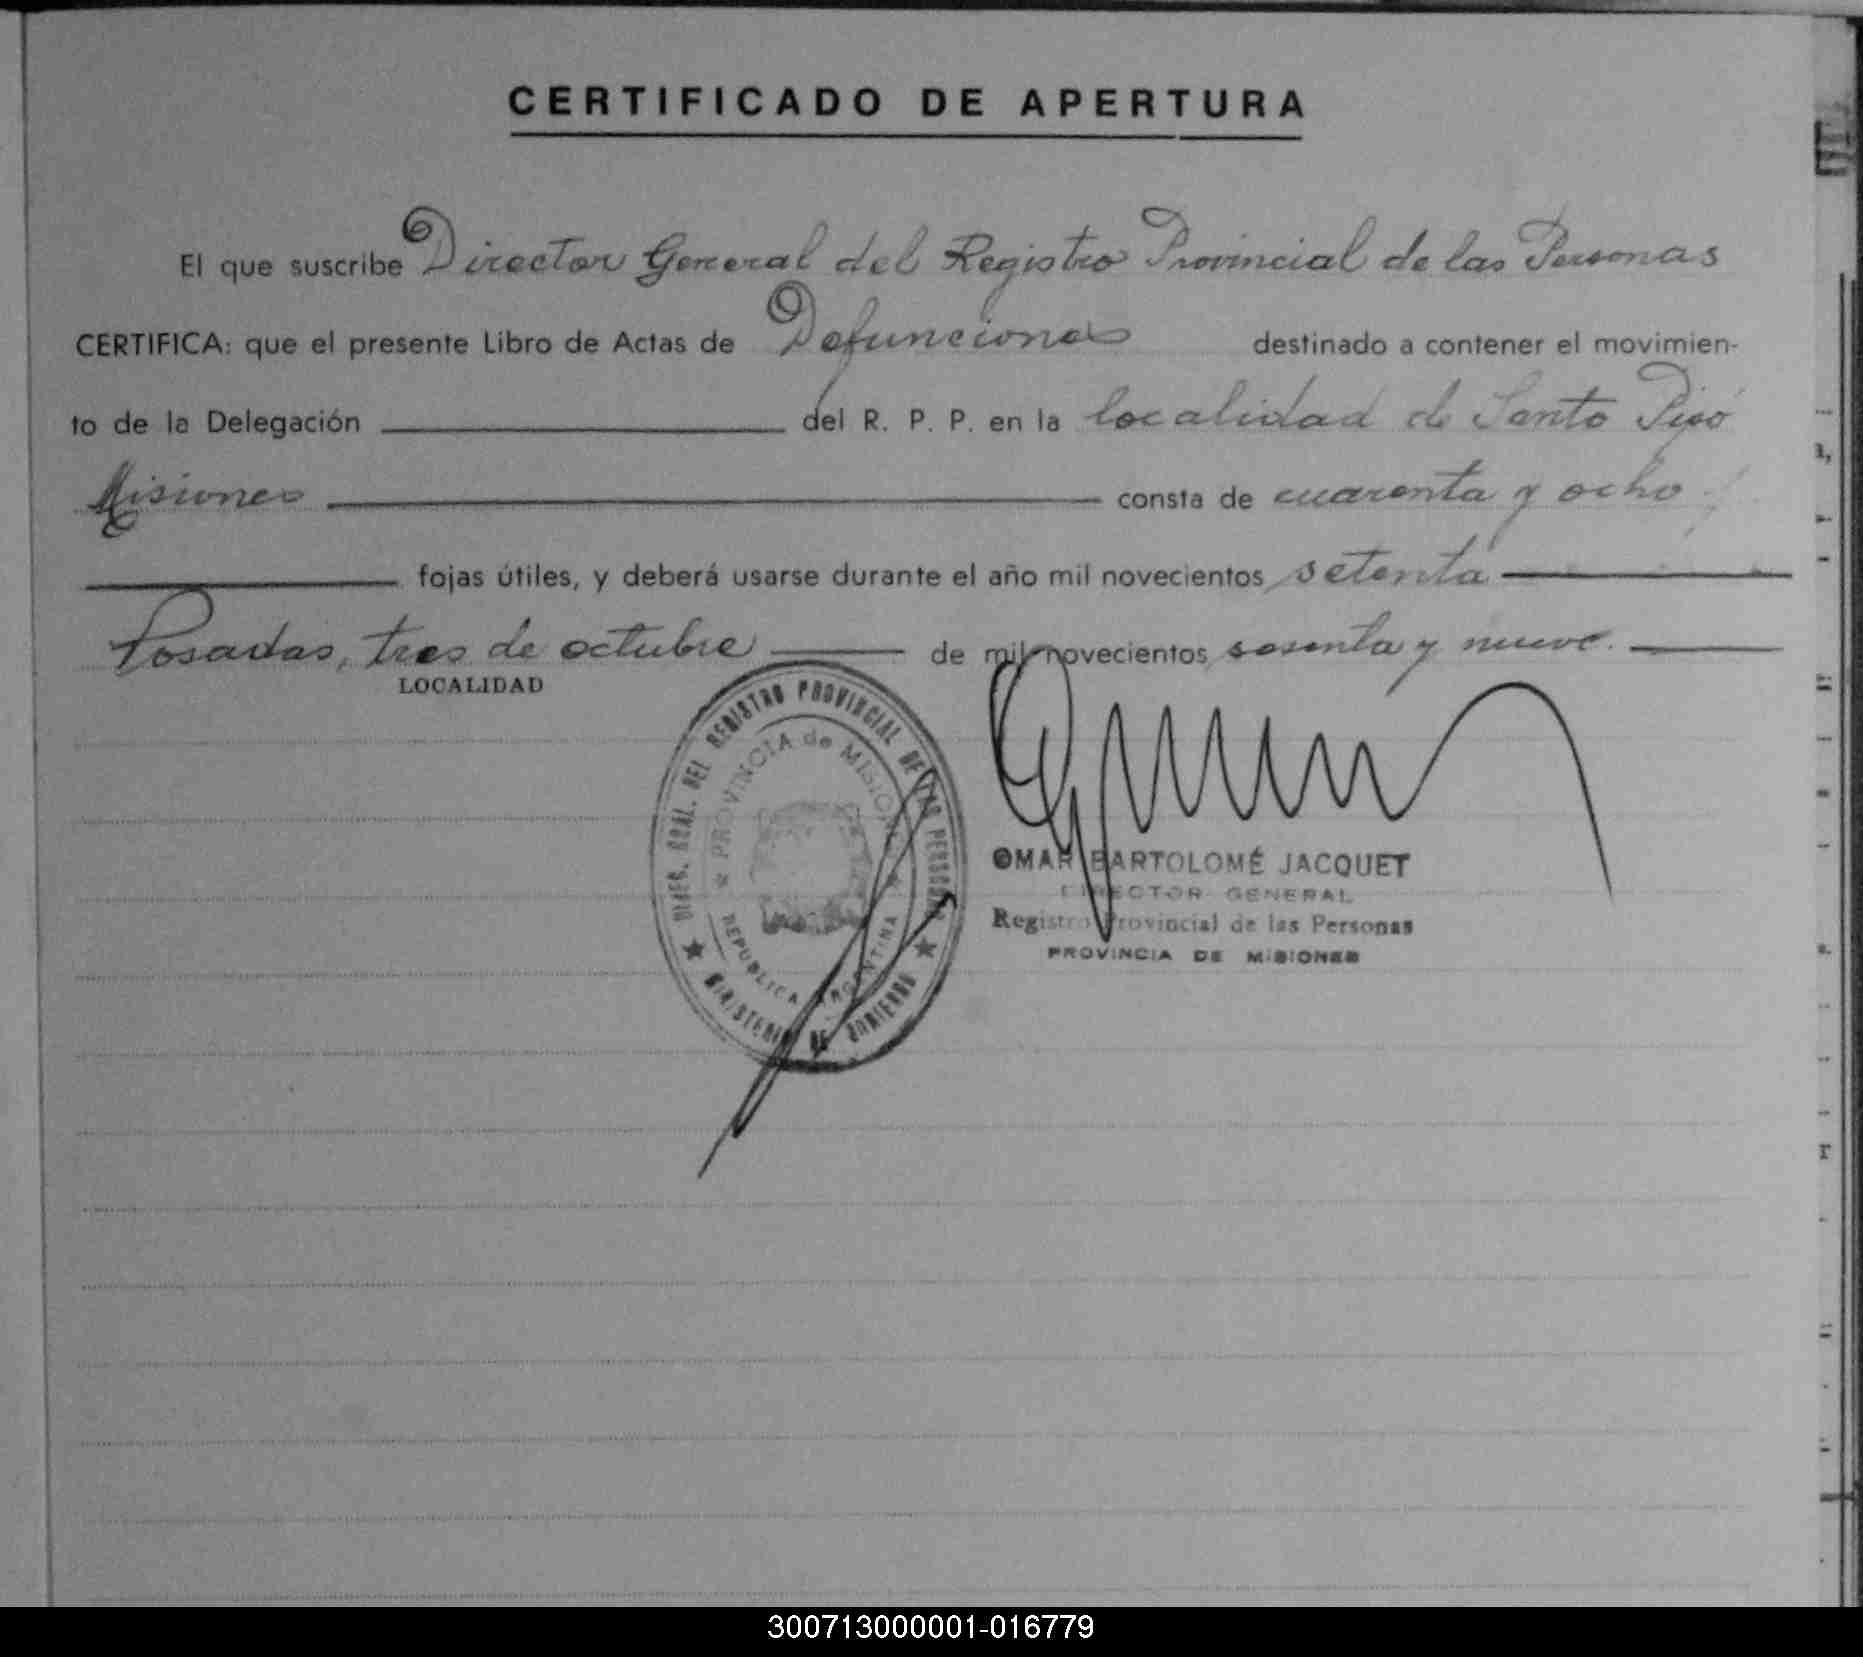 CERTIFICADO DE APERTURA
El que suscribe Director General del Registro Provincial de las Personas
CERTIFICA: que el presente Libro de Actas de Defunciones destinado a contener el movimien-
to de la Delegación del R. P. P. en la localidad de Santo Pipó
Misiones consta de cuarenta y ocho
fojas útiles, y deberá usarse durante el año mil novecientos setenta
Posadas, tres de octubre de mil novecientos sesenta y nueve.
LOCALIDAD
DIREC. GRAL. DEL REGISTRO PROVINCIAL DE LAS PERSONAS
★ MINISTERIO DE GOBIERNO ★
PROVINCIA de MISIONES
REPUBLICA ARGENTINA
OMAR BARTOLOMÉ JACQUET
DIRECTOR GENERAL
Registro Provincial de las Personas
PROVINCIA DE MISIONES
300713000001-016779